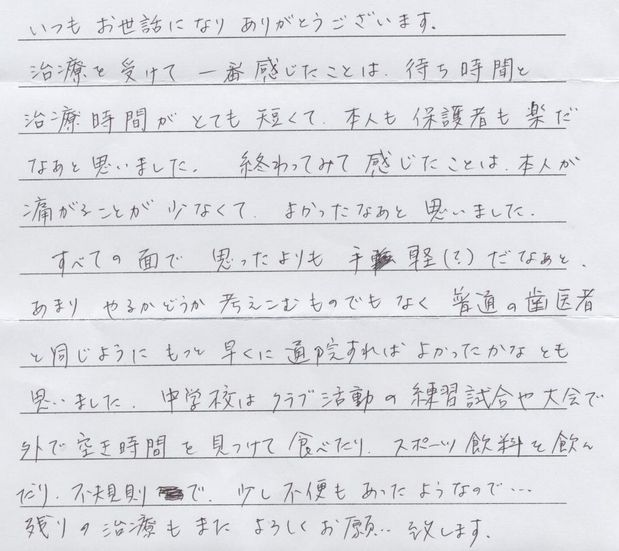 いつも お世話になり ありがとうございます。
治療を 受けて 一番 感じたことは、待ち時間と
治療時間が とても 短くて、本人も 保護者も 楽だ
なぁと 思いました。 終わってみて 感じたことは、本人が
痛がることが 少なくて、よかったなぁと 思いました。
すべての 面で 思ったよりも 手軽(?)だなぁと、
あまり やるかどうか 考えこむものでも なく 普通の 歯医者
と同じように もっと 早くに 通院すれば よかったかな とも
思いました。中学校は クラブ活動の 練習試合や 大会で
外で 空き時間を 見つけて 食べたり、スポーツ飲料を 飲ん
だり、不規則で、少し 不便も あったようなので…
残りの 治療も また よろしく お願い 致します。